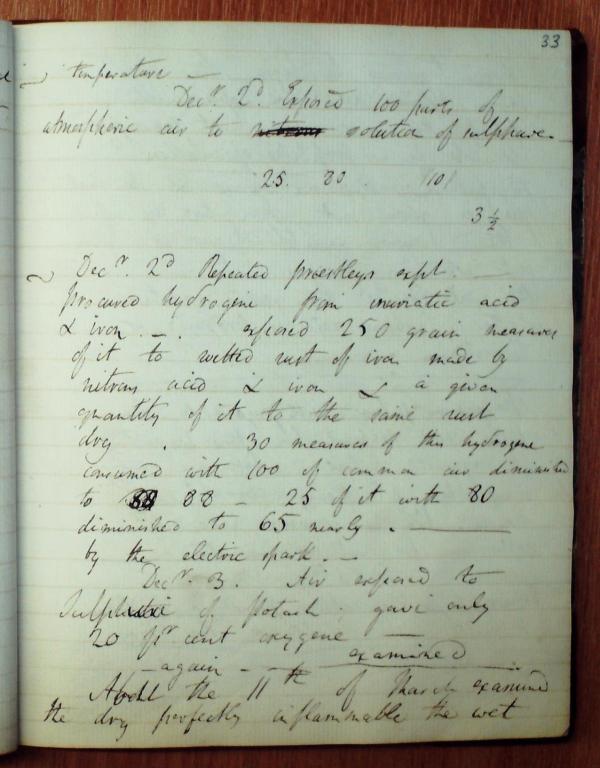 33
temperature –
Decr. 2d. Exposed 100 parts of
atmospheric air to nitrous solution of sulphure
25. 80. 101
3 1/2
Decr. 2d Repeated priestleys expt. —
procured hydrogene from muriatic acid
& iron. –. exposed 250 grain measures
of it to wetted rust of iron made by
nitrous acid & iron & a given
quantity of it to the same rust
dry . 30 measures of this hydrogene
consumed with 100 of common air diminished
to 88 88 – 25 of it with 80
diminished to 65 nearly . —
by the electric spark. –
Decr. 3. Air exposed to
of potash; gave only
20 pr cent oxygene —
– again – examined
About the 11th of March examined
the dry perfectly inflammable the wet